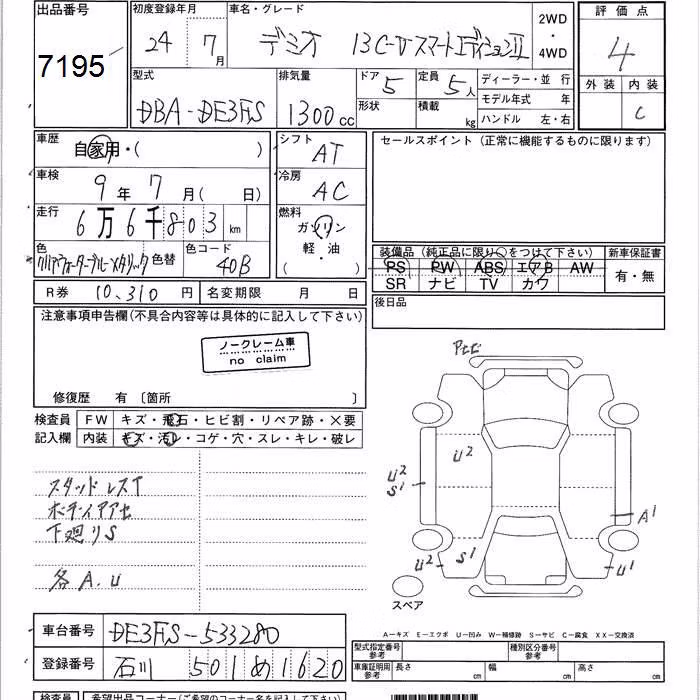 出品番号 初度登録年月 車名・グレード 2WD・4WD 評価点
7195 24年 7月 デミオ 13C-V スマートエディションII 4
型式 排気量 ドア 定員 ディーラー・並行 外装 内装
DBA-DE3FS 1300cc 5 5人 モデル年式 年 C
形状 積載 kg ハンドル 左・右
車歴 自家用・( ) シフト AT セールスポイント (正常に機能するものに限ります)
車検 9年 7月 ( 日) 冷房 AC
走行 6万6千803 km 燃料 ガソリン
軽・油
( )
色 クリアウォーターブルーメタリック 色替 色コード 40B
装備品 (純正品に限り○をつけて下さい) 新車保証書
PS PW ABS エアB AW 有・無
SR ナビ TV カワ
R券 10,310 円 名変期限 月 日 後日品
注意事項申告欄(不具合内容等は具体的に記入して下さい)
ノークレーム車
no claim
修復歴 有 〔箇所 〕
検査員 FW キズ・飛石・ヒビ割・リペア跡・×要
記入欄 内装 キズ・汚レ・コゲ・穴・スレ・キレ・破レ
スタッドレスT
ボディイアアセ
下廻りS
各A.U
Pセヒ
U2
U2
S1
A1
U2
S1
U1
スペア
車台番号 DE3FS-533280
登録番号 石川 501 め 1620
A-キズ E-エクボ U-凹み W-補修跡 S-サビ C-腐食 XX-交換済
型式指定番号 参考 種別区分番号 参考
車庫証明用 参考 長さ cm 幅 cm 高さ cm
検査員 希望出品コーナー(ご希望のコーナー名を記入して下さい)